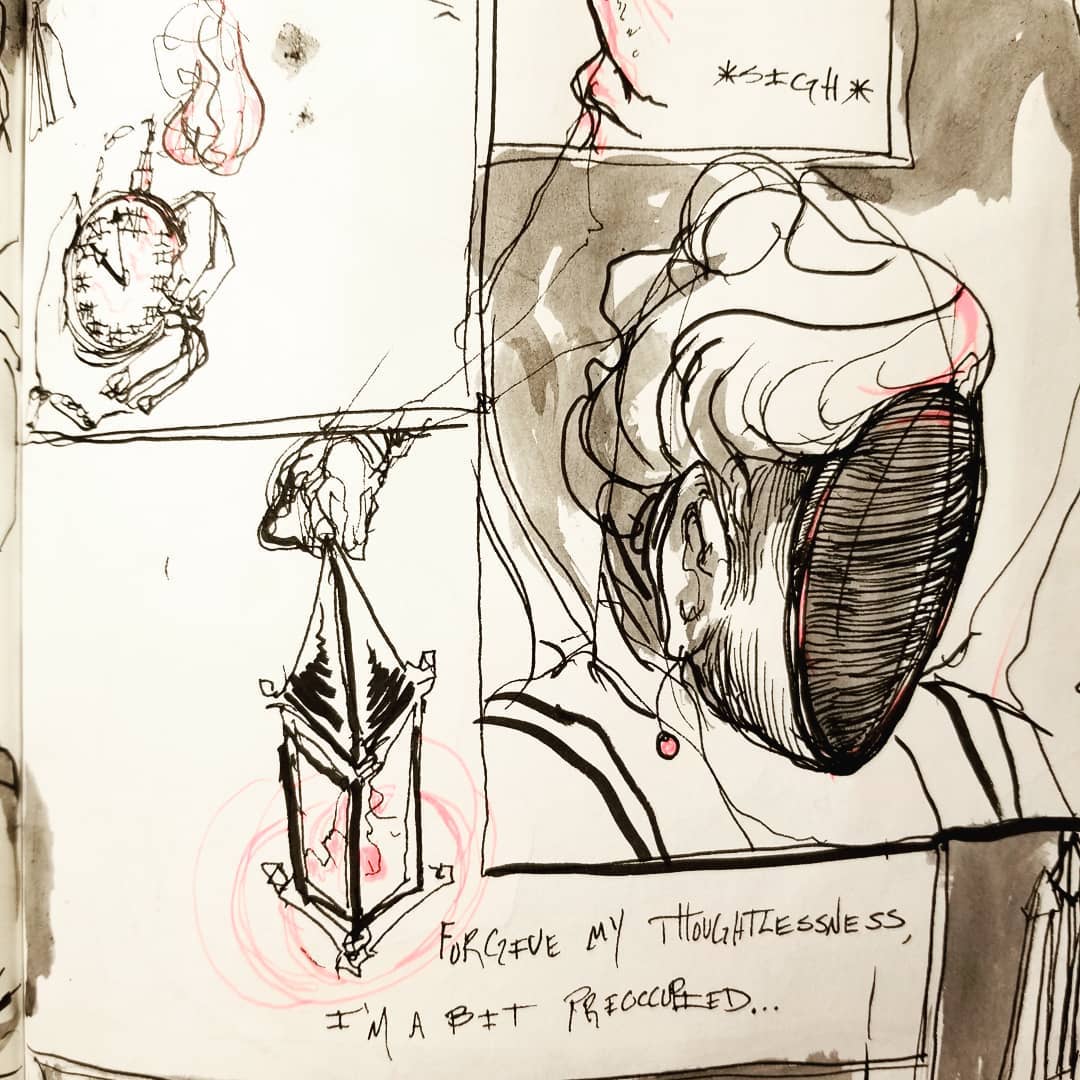 *SIGH*
FORGIVE MY THOUGHTLESSNESS,
I'M A BIT PREOCCUPIED...